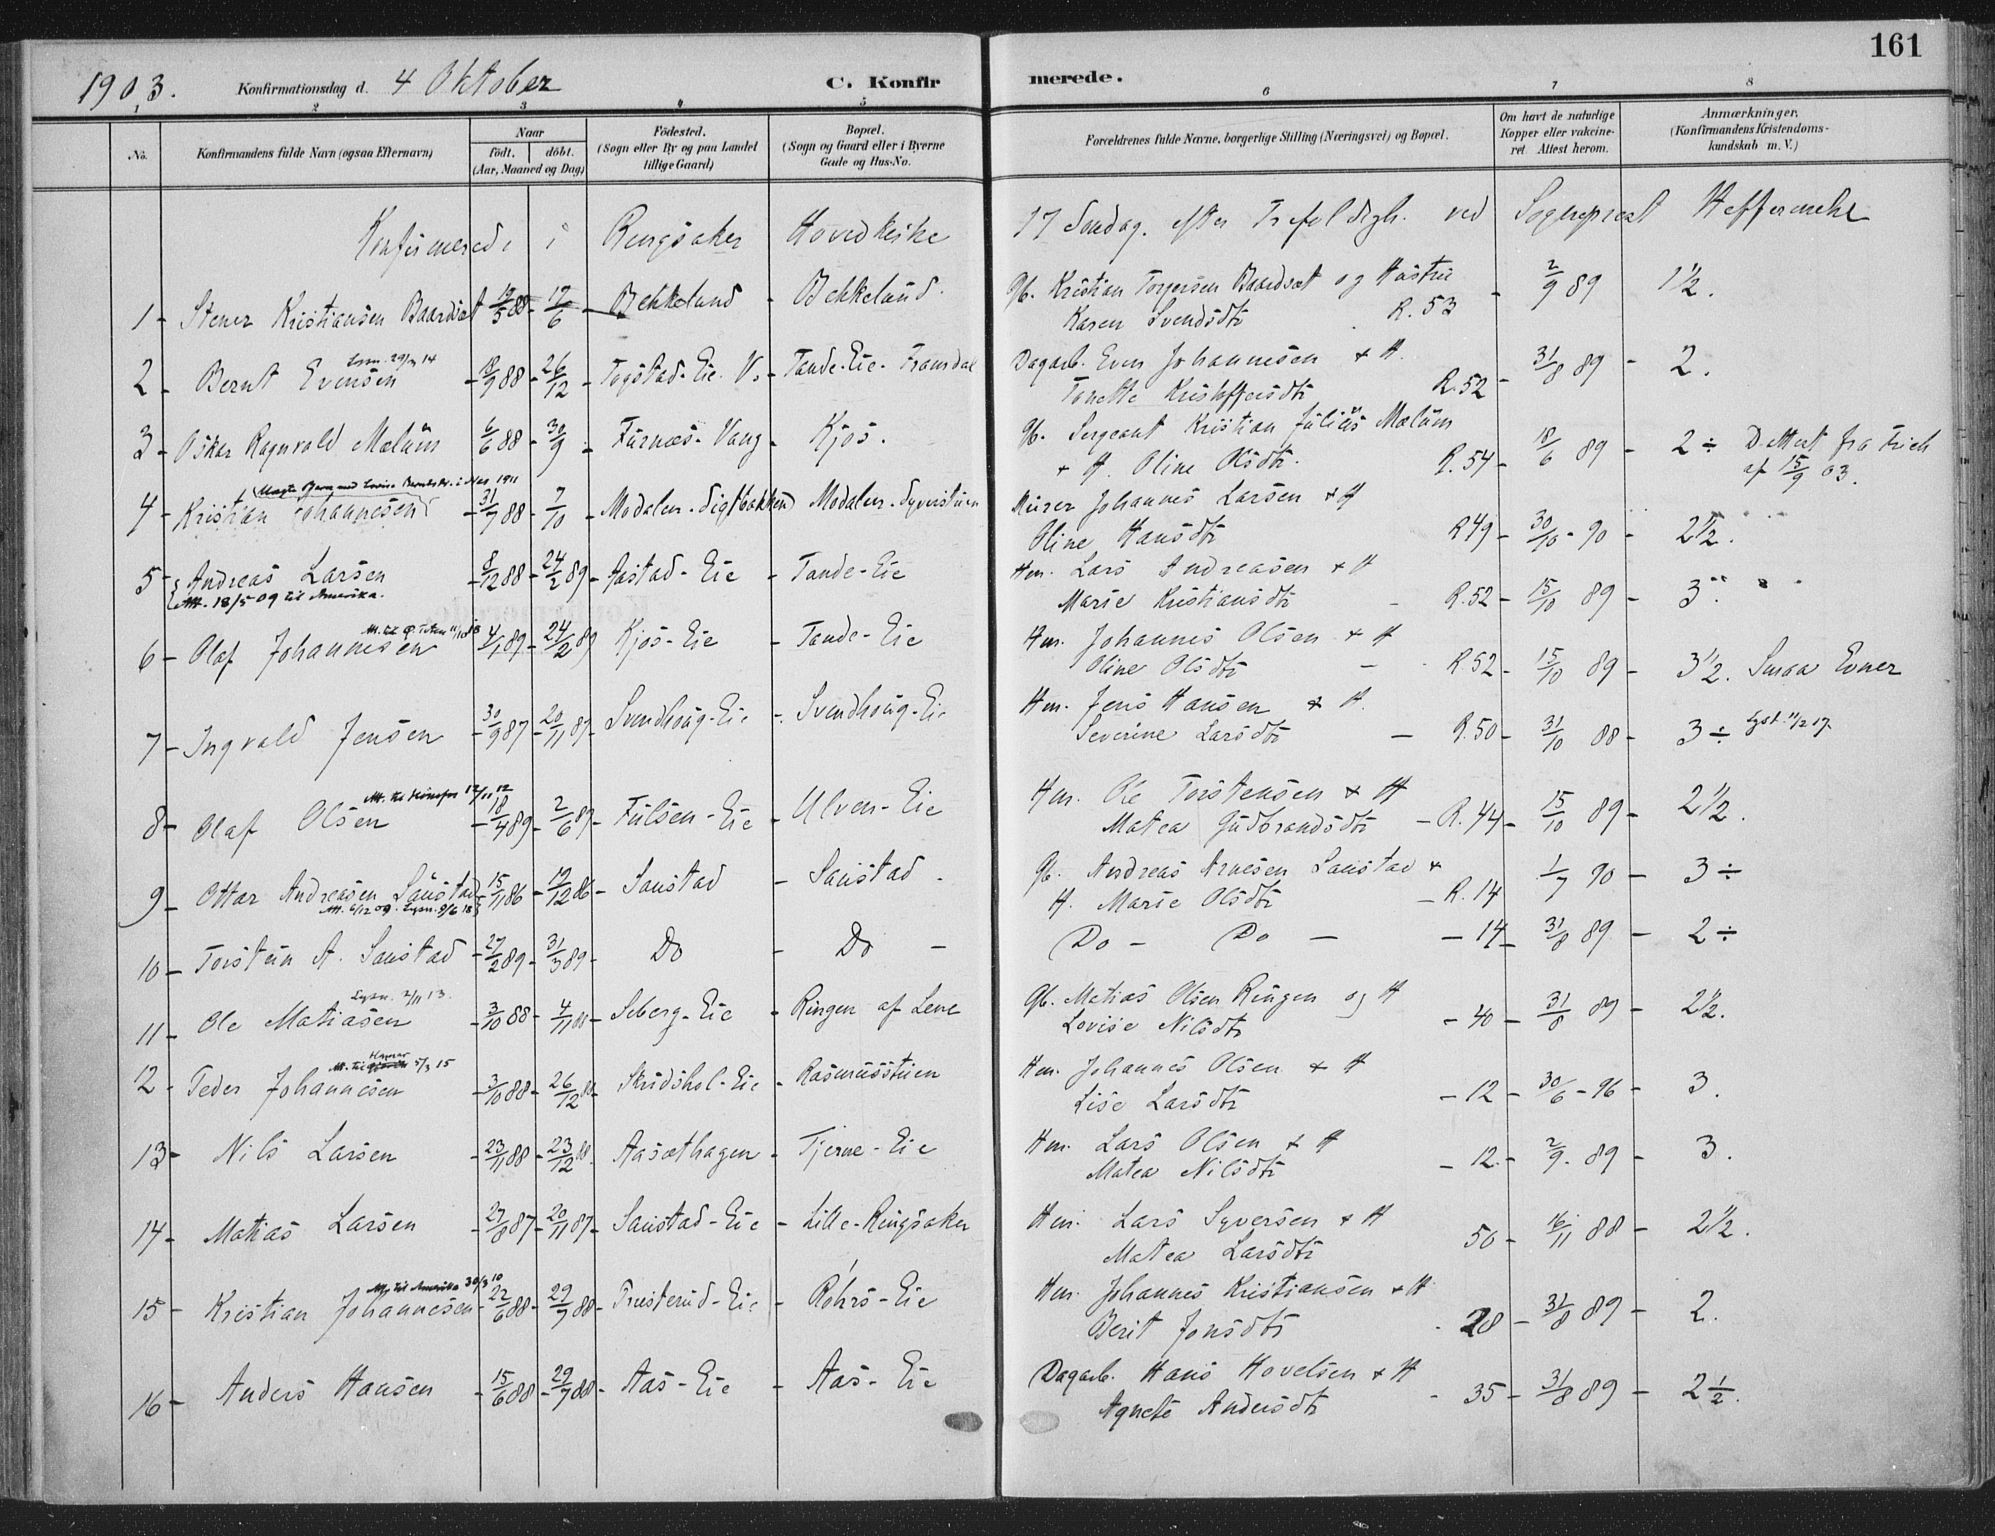 161
1903. Konfirmationsdag d. 4 Oktober C. Konfirmerede.
1 2 3 4 5 6 7 8
No. Konfirmandens fulde Navn (ogsaa Efternavn) Naar født. døbt. (Aar, Maaned og Dag) Fødested. (Sogn eller By og paa Landet tillige Gaard) Bopæl. (Sogn og Gaard eller i Byerne Gade og Hus-No. Forældrenes fulde Navne, borgerlige Stilling (Næringsvei) og Bopæl. Om havt de naturlige Kopper eller vakcineret Attest herom. Anmærkninger. (Konfirmandens Kristendomskundskab m. V.)
Konfirmerede i Ringsaker Hovedkirke 17 Søndag efter Trefoldigh. ved Sogneprest Heffermehl
1 - Stener Kristiansen Baardset 19/5 88 - 17/6 - Bekkelund - Bekkelund. Gb. Kristian Torgersen Baardset og Hustru - 2/9 89 1 1/2.
Karen Svendsdtr R. 53
Lysn. 29/3 14
2 - Bernt Evensen - 18/9 88 - 26/12 - Togstad-Eie. V. - Tande-Eie - Framdal Dagarb. Even Johannesen & H. - 31/8 89 - 2.
Tonette Kristoffersdtr R. 52
3 - Oskar Ragnvald Mælum 6/6 88 - 30/9 - Furnæs - Vang - Kjos. Gb. Sergeant Kristian Julius Mælum 18/6 89 - 2 ÷ D. Attest fra Frich
& H. Oline Olsdtr. R. 54 - af 15/9 03.
4 - Kristian Johannesen - 31/7 88 - 7/10 - Modalen - Sigtbakken Modalen - Syverstuen Murer Johannes Larsen & H
Oline Hansdtr R 49 - 30/10 - 90 - 2 1/2.
5 - Andreas Larsen - 8/12 88 - 24/2 89 - Gaistad - Eie - Tande-Eie Hm. Lars Andreasen & H
Att. 18/5 09 til Amerika. Marie Kristiansdtr - R. 52 - 15/10 89 - 3.
6 - Olaf Johannesen - 4/1 89 - 24/2 89 Kjos-Eie - Tande-Eie Hm. Johannes Olsen & H
Oline Olsdtr - R. 52 - 15/10 89 - 3 1/2. Smaa Evner
7 - Ingvald Jensen - 30/9 87 - 20/11 87 - Svendhoug-Eie - Svendhoug-Eie Hm. Jens Hansen & H.
Severine Larsdtr - R. 50 - 31/10 88 - 3 ÷
8 - Olaf Olsen - 18/4 89 - 2/6 89 - Fulsen-Eie - Ulven-Eie Hm. Ole Torstensen & H
Matea Gudbrandsdtr - R. 44 - 15/10 89 - 2 1/2.
9 - Ottar Andreasen Saustad - 15/11 86 - 19/12 86 - Saustad - Saustad - Gb. Andreas Arnesen Saustad & 1/7 90 - 3 ÷
Att. 6/12 09. Lysn. 9/6 18 H. Marie Olsdtr - R. 14
10 - Torstein A. Saustad - 27/2 89 - 31/3 89 - Do - Do - Do - Do - - 14 - 31/8 89 - 2 ÷
Lysn. 2/11 13.
11 - Ole Matiasen - 3/10 88 - 4/11 88 - Seberg-Eie - Ringen af Lene Gb. Matias Olsen Ringen og H
Lovise Nilsdtr - 40 - 31/8 89 - 2 1/2.
Hamar
12 - Peder Johannesen - 3/10 88 - 26/12 88 - Skridshol-Eie - Rasmusstuen Hm. Johannes Olsen & H
Lise Larsdtr - 12 - 30/6 - 96 - 3.
13 - Nils Larsen - 23/11 88 - 23/12 88. Aasæthagen - Tjerne-Eie Hm. Lars Olsen & H
Matea Nilsdtr - 12 - 2/9. 89 - 3.
14 - Matias Larsen - 27/8 87 - 20/11 87 - Saustad-Eie - Lille-Ringsaker Hm. Lars Syversen & H
Matea Larsdtr 50 - 16/11 88 - 2 1/2.
Att. til Amerika 30/3 10
15 - Kristian Johannesen - 22/6 88 - 29/7 88 - Præsterud-Eie - Røhrs-Eie Hm. Johannes Kristiansen & H
Berit Jonsdtr - 28 - 31/8 89 - 2.
16 - Anders Hansen - 15/6 88 - 29/7 88 - Aas-Eie - Aas-Eie Dagarb. Hans Hovelsen & H
Agnete Andersdtr - 35 - 31/8 89 - 2 1/2.